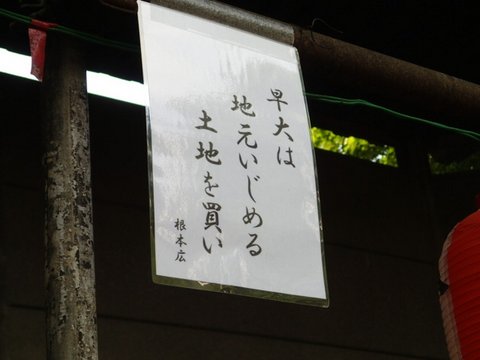 早大は
地元いじめる
土地を買い
根本広